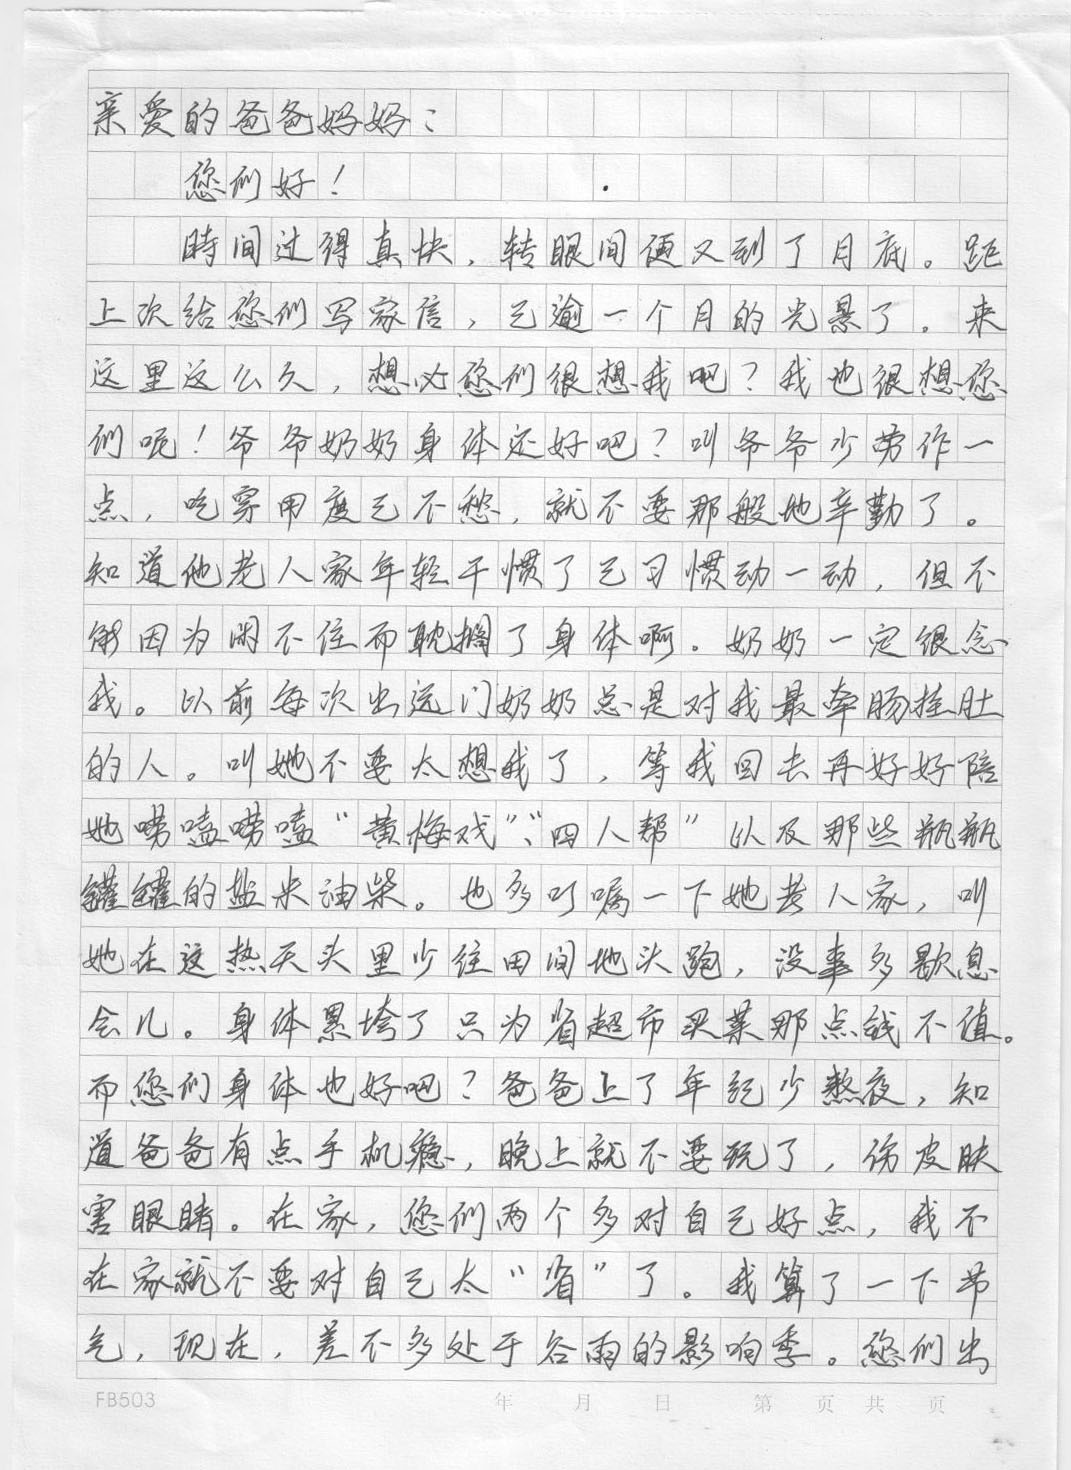 亲爱的爸爸妈妈：
您们好！
時间过得真快，转眼间便又到了月底。距
上次给您们写家信，已逾一个月的光景了。来
这里这么久，想必您们很想我吧？我也很想您
们呢！爷爷奶奶身体还好吧？叫爷爷少劳作一
点，吃穿用度已不愁，就不要那般地辛勤了。
知道他老人家年轻干惯了已习惯动一动，但不
能因为闲不住而耽搁了身体啊。奶奶一定很念
我。以前每次出远门奶奶总是对我最牵肠挂肚
的人。叫她不要太想我了，等我回去再好好陪
她唠嗑唠嗑“黄梅戏”、“四人帮”以及那些瓶瓶
罐罐的盐米油柴。也多叮嘱一下她老人家，叫
她在这热天头里少往田间地头跑，没事多歇息
会儿。身体累垮了只为省超市买菜那点钱不值。
而您们身体也好吧？爸爸上了年纪少熬夜，知
道爸爸有点手机瘾，晚上就不要玩了，伤皮肤
害眼睛。在家，您们两个多对自己好点，我不
在家就不要对自己太“省”了。我算了一下节
气，现在，差不多处于谷雨的影响季。您们出
FB503 年 月 日 第 页 共 页